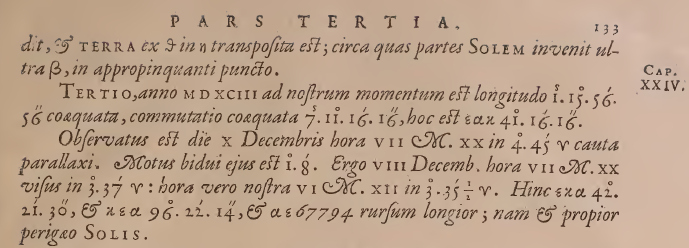 PARS TERTIA. 133
dit, & TERRA ex ϑ in η transposita est; circa quas partes SOLEM invenit ul-
tra β, in appropinquanti puncto.
CAP. XXIV.
TERTIO, anno MDXCIII ad nostrum momentum est longitudo 1ˢ. 15°. 56′.
56″ coæquata, commutatio coæquata 7ˢ. 11°. 16′. 16″, hoc est εακ 41°. 16′. 16″.
Observatus est die X Decembris hora VII M. XX in 4°. 45′ ♈ cauta
parallaxi. Motus bidui ejus est 1°. 8′. Ergo VIII Decemb. hora VII M. XX
visus in 3°. 37′ ♈: hora vero nostra VI M. XII in 3°. 35′ ½ ♈. Hinc εκα 42°.
21′. 30″, & κεα 96°. 22′. 14″, & αε 67794 rursum longior; nam & propior
perigæo SOLIS.